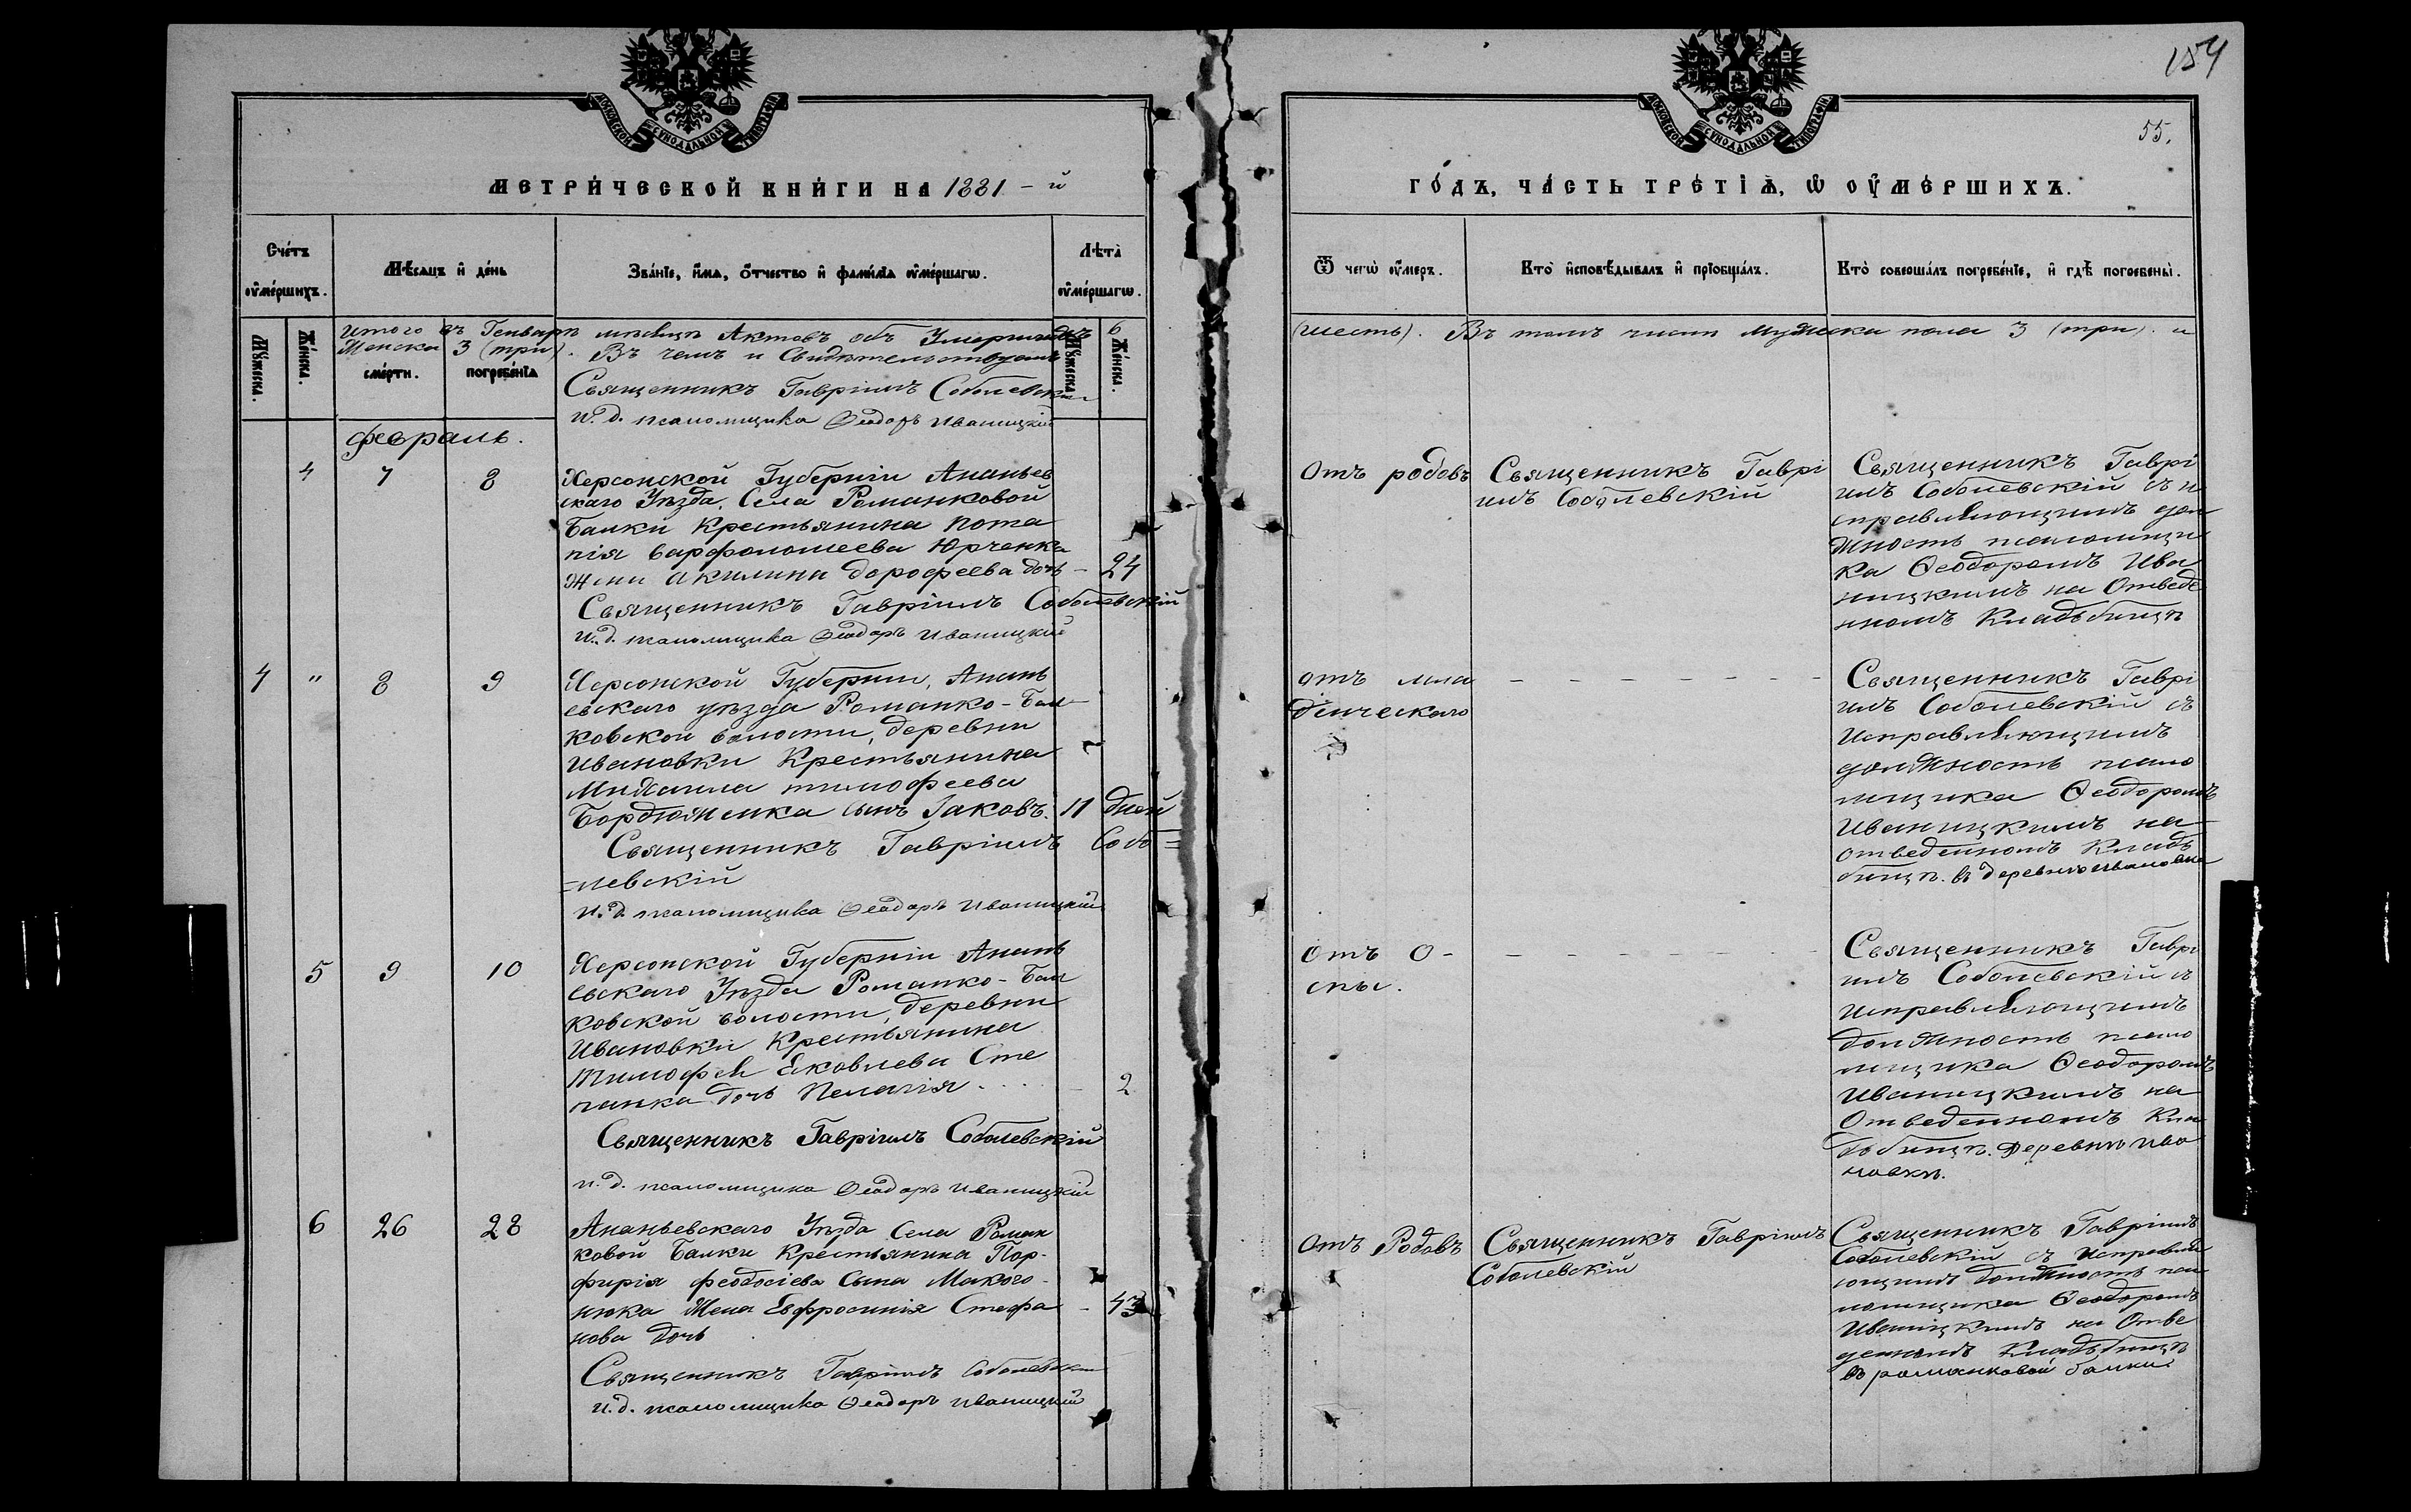 154
55.
МОСКОВСКОЙ СѴНОДАЛЬНОЙ ТИПОГРАФІИ
МОСКОВСКОЙ СѴНОДАЛЬНОЙ ТИПОГРАФІИ
МЕТРИ́ЧЕСКОЙ КНИ́ГИ НА 1881-й
ГО́ДЪ, ЧА́СТЬ ТРЕ́ТІѦ, Ѡ ОУ҆МЕ́РШИХЪ.
Сче́тъ
оу҆ме́ршихъ.
Мѣ́сѧцъ и҆ де́нь
Зва́нїе, и҆́мѧ, ѻ҆́тчество и҆ фами́лїѧ оу҆ме́ршагѡ.
Лѣта̀
оу҆ме́ршагѡ.
Ѿ чегѡ̀ оу҆́меръ.
Кто̀ и҆сповѣ́дывалъ и҆ прїобща́лъ.
Кто̀ соверша́лъ погребе́нїе, и҆ гдѣ̀ погребены̀.
Мꙋ́жеска.
Же́нска.
сме́рти.
погребе́нїѧ
Мꙋ́жеска.
Же́нска.
Итого въ Генварѣ мѣсяцѣ Актовъ объ Умершихъ 6
(шесть). Въ томъ числѣ мужеска пола 3 (три). и
Женска 3 (три). Въ чемъ и Свидѣтельствуемъ
Священникъ Гавріилъ Соболевскій
И. д. псаломщика Ѳеодоръ Иваницкій
Февраль.
4 7 8
Херсонской Губерніи Ананьев
скаго Уѣзда, Села Романковой
Балки Крестьянина Пота
пія Варфоломеева Юрченка
жени Акилина Дорофеева дочь - 24
Священникъ Гавріилъ Соболевскій
И. д. псаломщика Ѳеодоръ Иваницкій
Отъ родовъ
Священникъ Гаврі
илъ Соболевскій
Священникъ Гаврі
илъ Соболевскій съ и
справляющимъ дол
жность псаломщи
ка Ѳеодоромъ Ива
ницкимъ на Отведе
нномъ Кладьбищѣ
4 " 8 9
Херсонской Губерніи, Анань
евскаго уѣзда Романко-Бал
ковской волости, деревни
Ивановки Крестьянина
Михаила Тимофеева
Бордюженка сынъ Іаковъ. 11 дней
Священникъ Гавріилъ Собо=
=левскій
И. д. псаломщика Ѳеодоръ Иваницкій
Отъ мла
денческаго
- - - - - - -
Священникъ Гаврі
илъ Соболевскій съ
Исправляющимъ
должность псало
мщика Ѳеодоромъ
Иваницкимъ на
отведенномъ Кладь
бищѣ. в деревню Ивановка
5 9 10
Херсонской Губерніи Анань
евскаго Уѣзда Романко-Бал
ковской волости, деревни
Ивановки Крестьянина
Тимофея Яковлева Сте
панка дочь Пелагія.... - 2
Священникъ Гавріилъ Соболевскій
И. д. псаломщика Ѳеодоръ Иваницкій
Отъ О-
спы.
- - - - - - -
Священникъ Гаврі
илъ Соболевскій съ
Исправляющимъ
должность псало
мщика Ѳеодоромъ
Иваницкимъ на
Отведенномъ Кла
дьбищѣ. деревнѣ Ива
новкѣ.
6 26 28
Ананьевскаго Уѣзда Села Роман
ковой Балки Крестьянина Пор-
фирія Феодосіева Сына Макого-
нюка Жена Евфросинія Стефа - 43
нова дочь
Священникъ Гавріилъ Соболевскій
И. д. псаломщика Ѳеодоръ Иваницкій
Отъ Родовъ
Священникъ Гавріилъ
Соболевскій
Священникъ Гавріилъ
Соболевскій съ Исправля
ющимъ должность пса
ломщика Ѳеодоромъ
Иваницкимъ на Отве
денномъ Кладьбищѣ
въ романковой балки